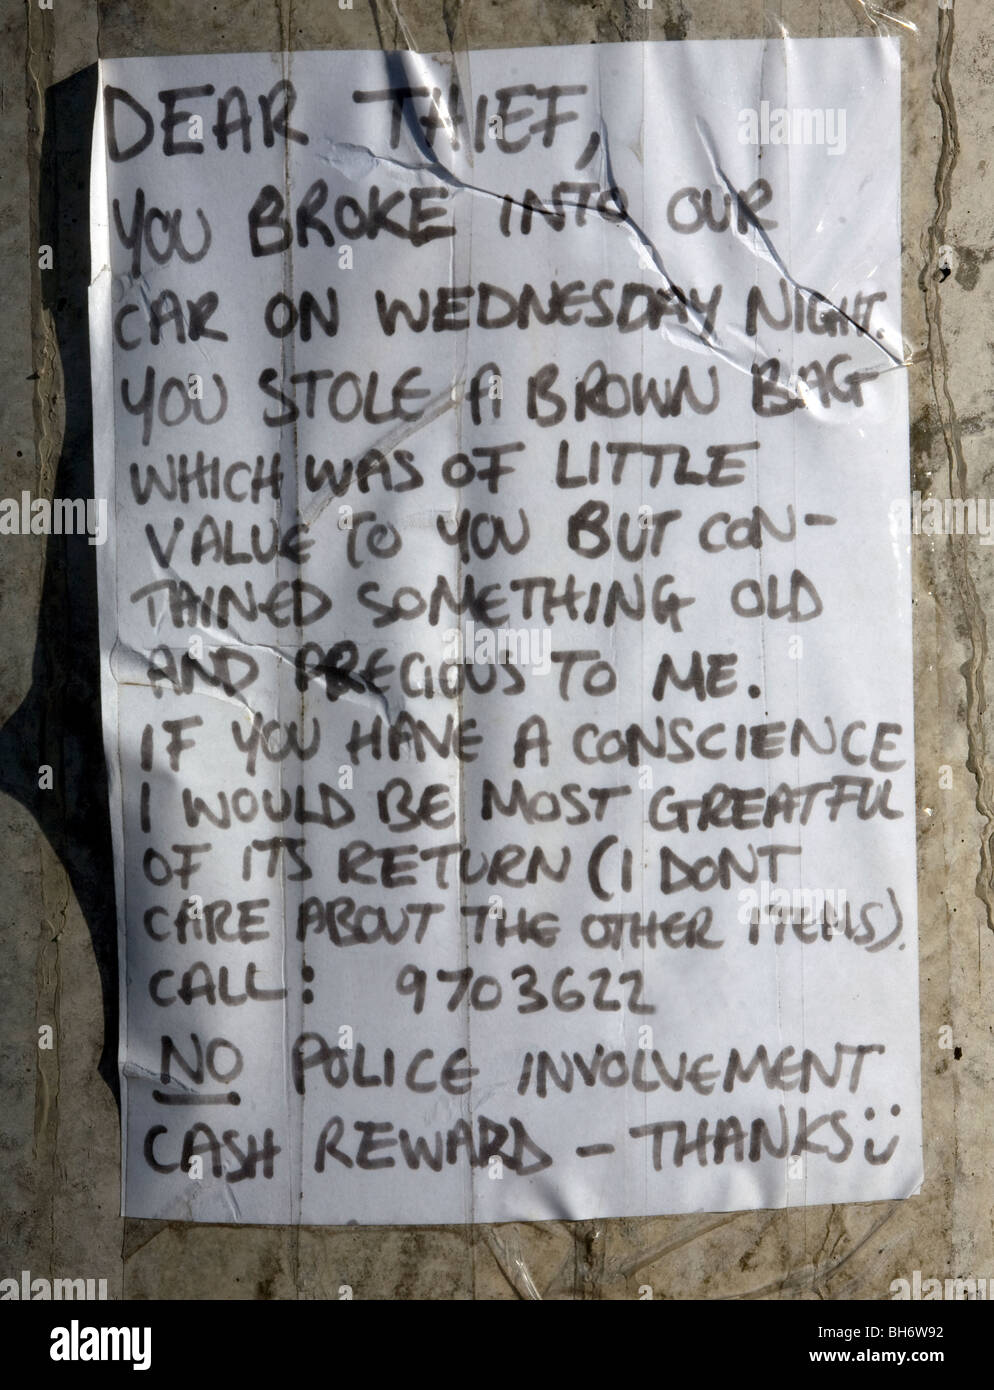 DEAR THIEF,
YOU BROKE INTO OUR
CAR ON WEDNESDAY NIGHT.
YOU STOLE A BROWN BAG
WHICH WAS OF LITTLE
VALUE TO YOU BUT CON-
TAINED SOMETHING OLD
AND PRECIOUS TO ME.
IF YOU HAVE A CONSCIENCE
I WOULD BE MOST GREATFUL
OF ITS RETURN (I DONT
CARE ABOUT THE OTHER ITEMS).
CALL: 9703622
NO POLICE INVOLVEMENT
CASH REWARD - THANKS Ü
alamy
Image ID: BH6W92
www.alamy.com